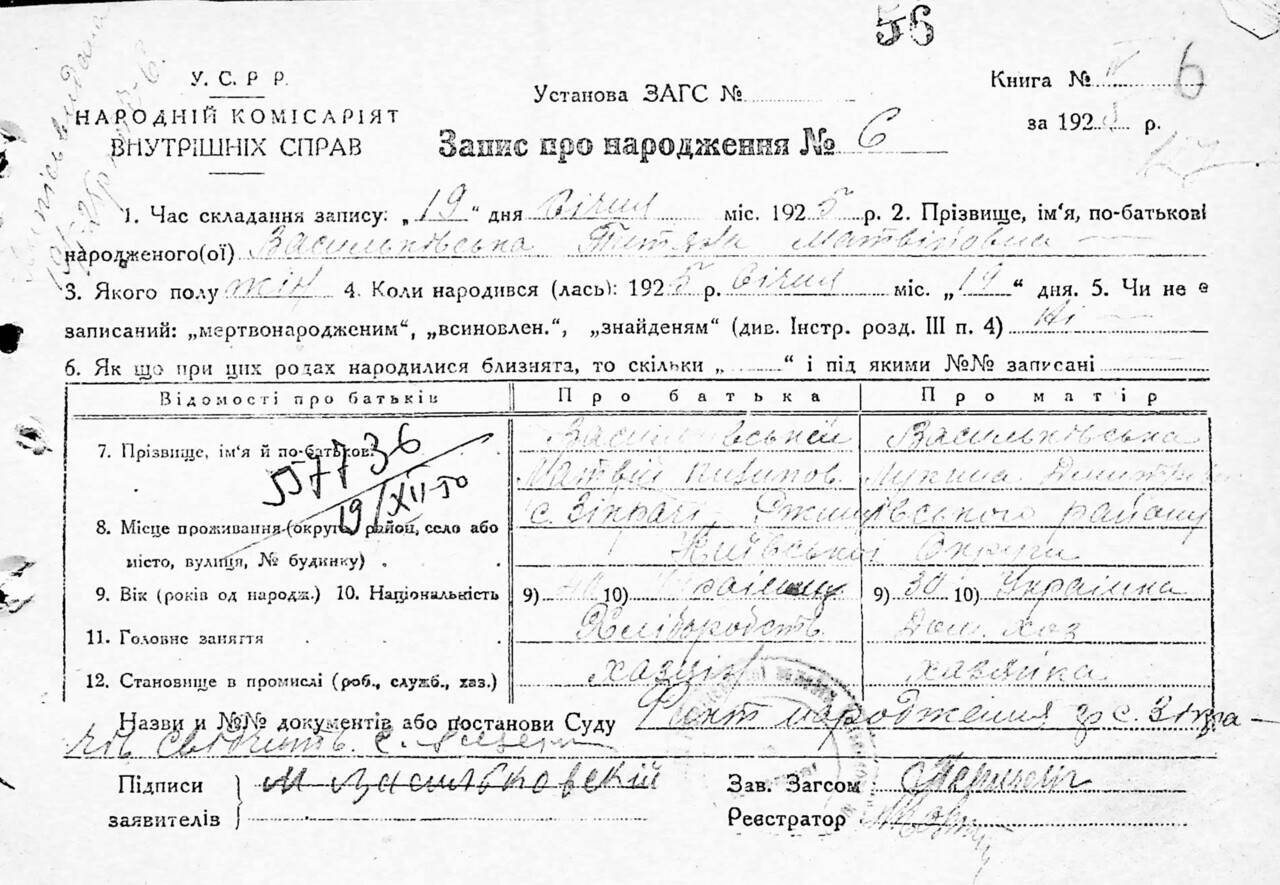 56
У. С. Р Р.
НАРОДНІЙ КОМІСАРІЯТ
ВНУТРІШНІХ СПРАВ
Установа ЗАГС №
Книга № 6
за 1925 р.
Запис про народження № 6
1. Час складання запису: „19“ дня Січня міс. 1925 р. 2. Прізвище, ім'я, по-батькові
народженого(ої) Васильковська Титяна Матвіївна
3. Якого полу жін 4. Коли народився (лась): 1925 р. Січня міс. „19“ дня. 5. Чи не є
записаний: „мертвонародженим“, „всиновлен.“, „знайденям“ (див. Інстр. розд. III п. 4) Ні
6. Як що при цих родах народилися близнята, то скільки „ “ і під якими №№ записані
Відомості про батьків Про батька Про матір
7. Прізвище, ім'я й по-батькові Васильківський Васильковська
557736 Матвій Лукина
19/XII-50
8. Місце проживання (округа, район, село або с. Зікрачі, району
місто, вулиця, № будинку) Київської Округи
9. Вік (років од народж.) 10. Національність 9) 40 10) 9) 30 10) Українка
11. Головне заняття Хліборобств. Дом. хоз
12. Становище в промислі (роб., служб., хаз.) хазяїн хазяйка
Назви и №№ документів або постанови Суду Факт народження з с. Зікра-
чів свідчить с.
Підписи заявителів М Васильковскій
Зав. Загсом
Реєстратор